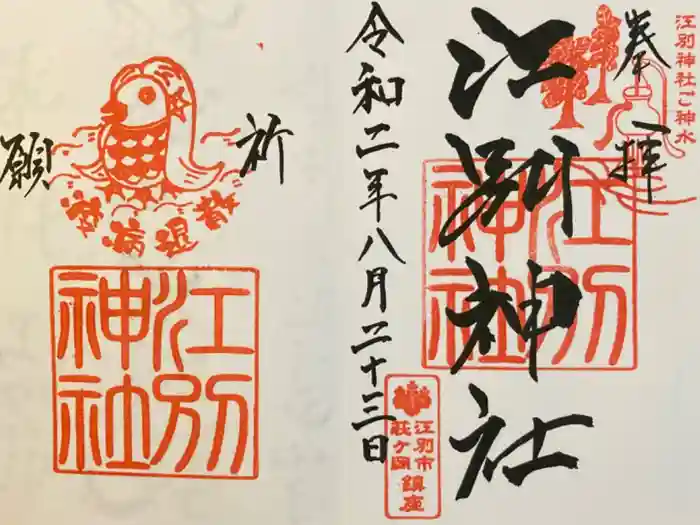 江別神社ご神水
奉拝
江別神社
江別
神社
令和二年八月二十三日
江別市
萩ヶ岡
鎮座
祈
願
疫病退散
江別
神社